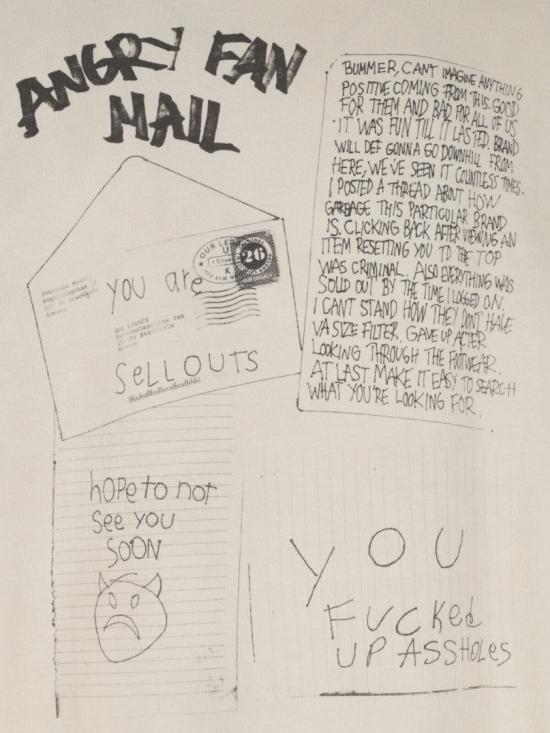 ANGRY FAN
MAIL
BUMMER, CANT IMAGINE ANYTHING
POSITIVE COMING FROM THIS. GOOD
FOR THEM AND BAD FOR ALL OF US
IT WAS FUN TILL IT LASTED. BRAND
WILL DEF GONNA GO DOWNHILL FROM
HERE, WE'VE SEEN IT COUNTLESS TIMES.
I POSTED A THREAD ABOUT HOW
GARBAGE THIS PARTICULAR BRAND
IS. CLICKING BACK AFTER VIEWING AN
ITEM RESETTING YOU TO THE TOP
WAS CRIMINAL. ALSO EVERYTHING WAS
SOLD OUT BY THE TIME I LOGGED ON.
I CANT STAND HOW THEY DON'T HAVE
VA SIZE FILTER. GAVE UP AFTER
LOOKING THROUGH THE FOOTWEAR.
AT LAST MAKE IT EASY TO SEARCH
WHAT YOU'RE LOOKING FOR.
OUR LE
26
you are
SELLOUTS
hope to not
see you
SOON
YOU
FUCKed
UP ASSHOLES